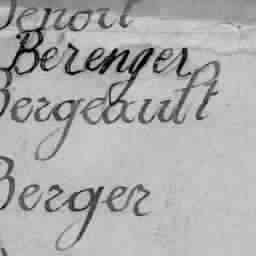 Benoit
Bérenger
Bergeault
Berger